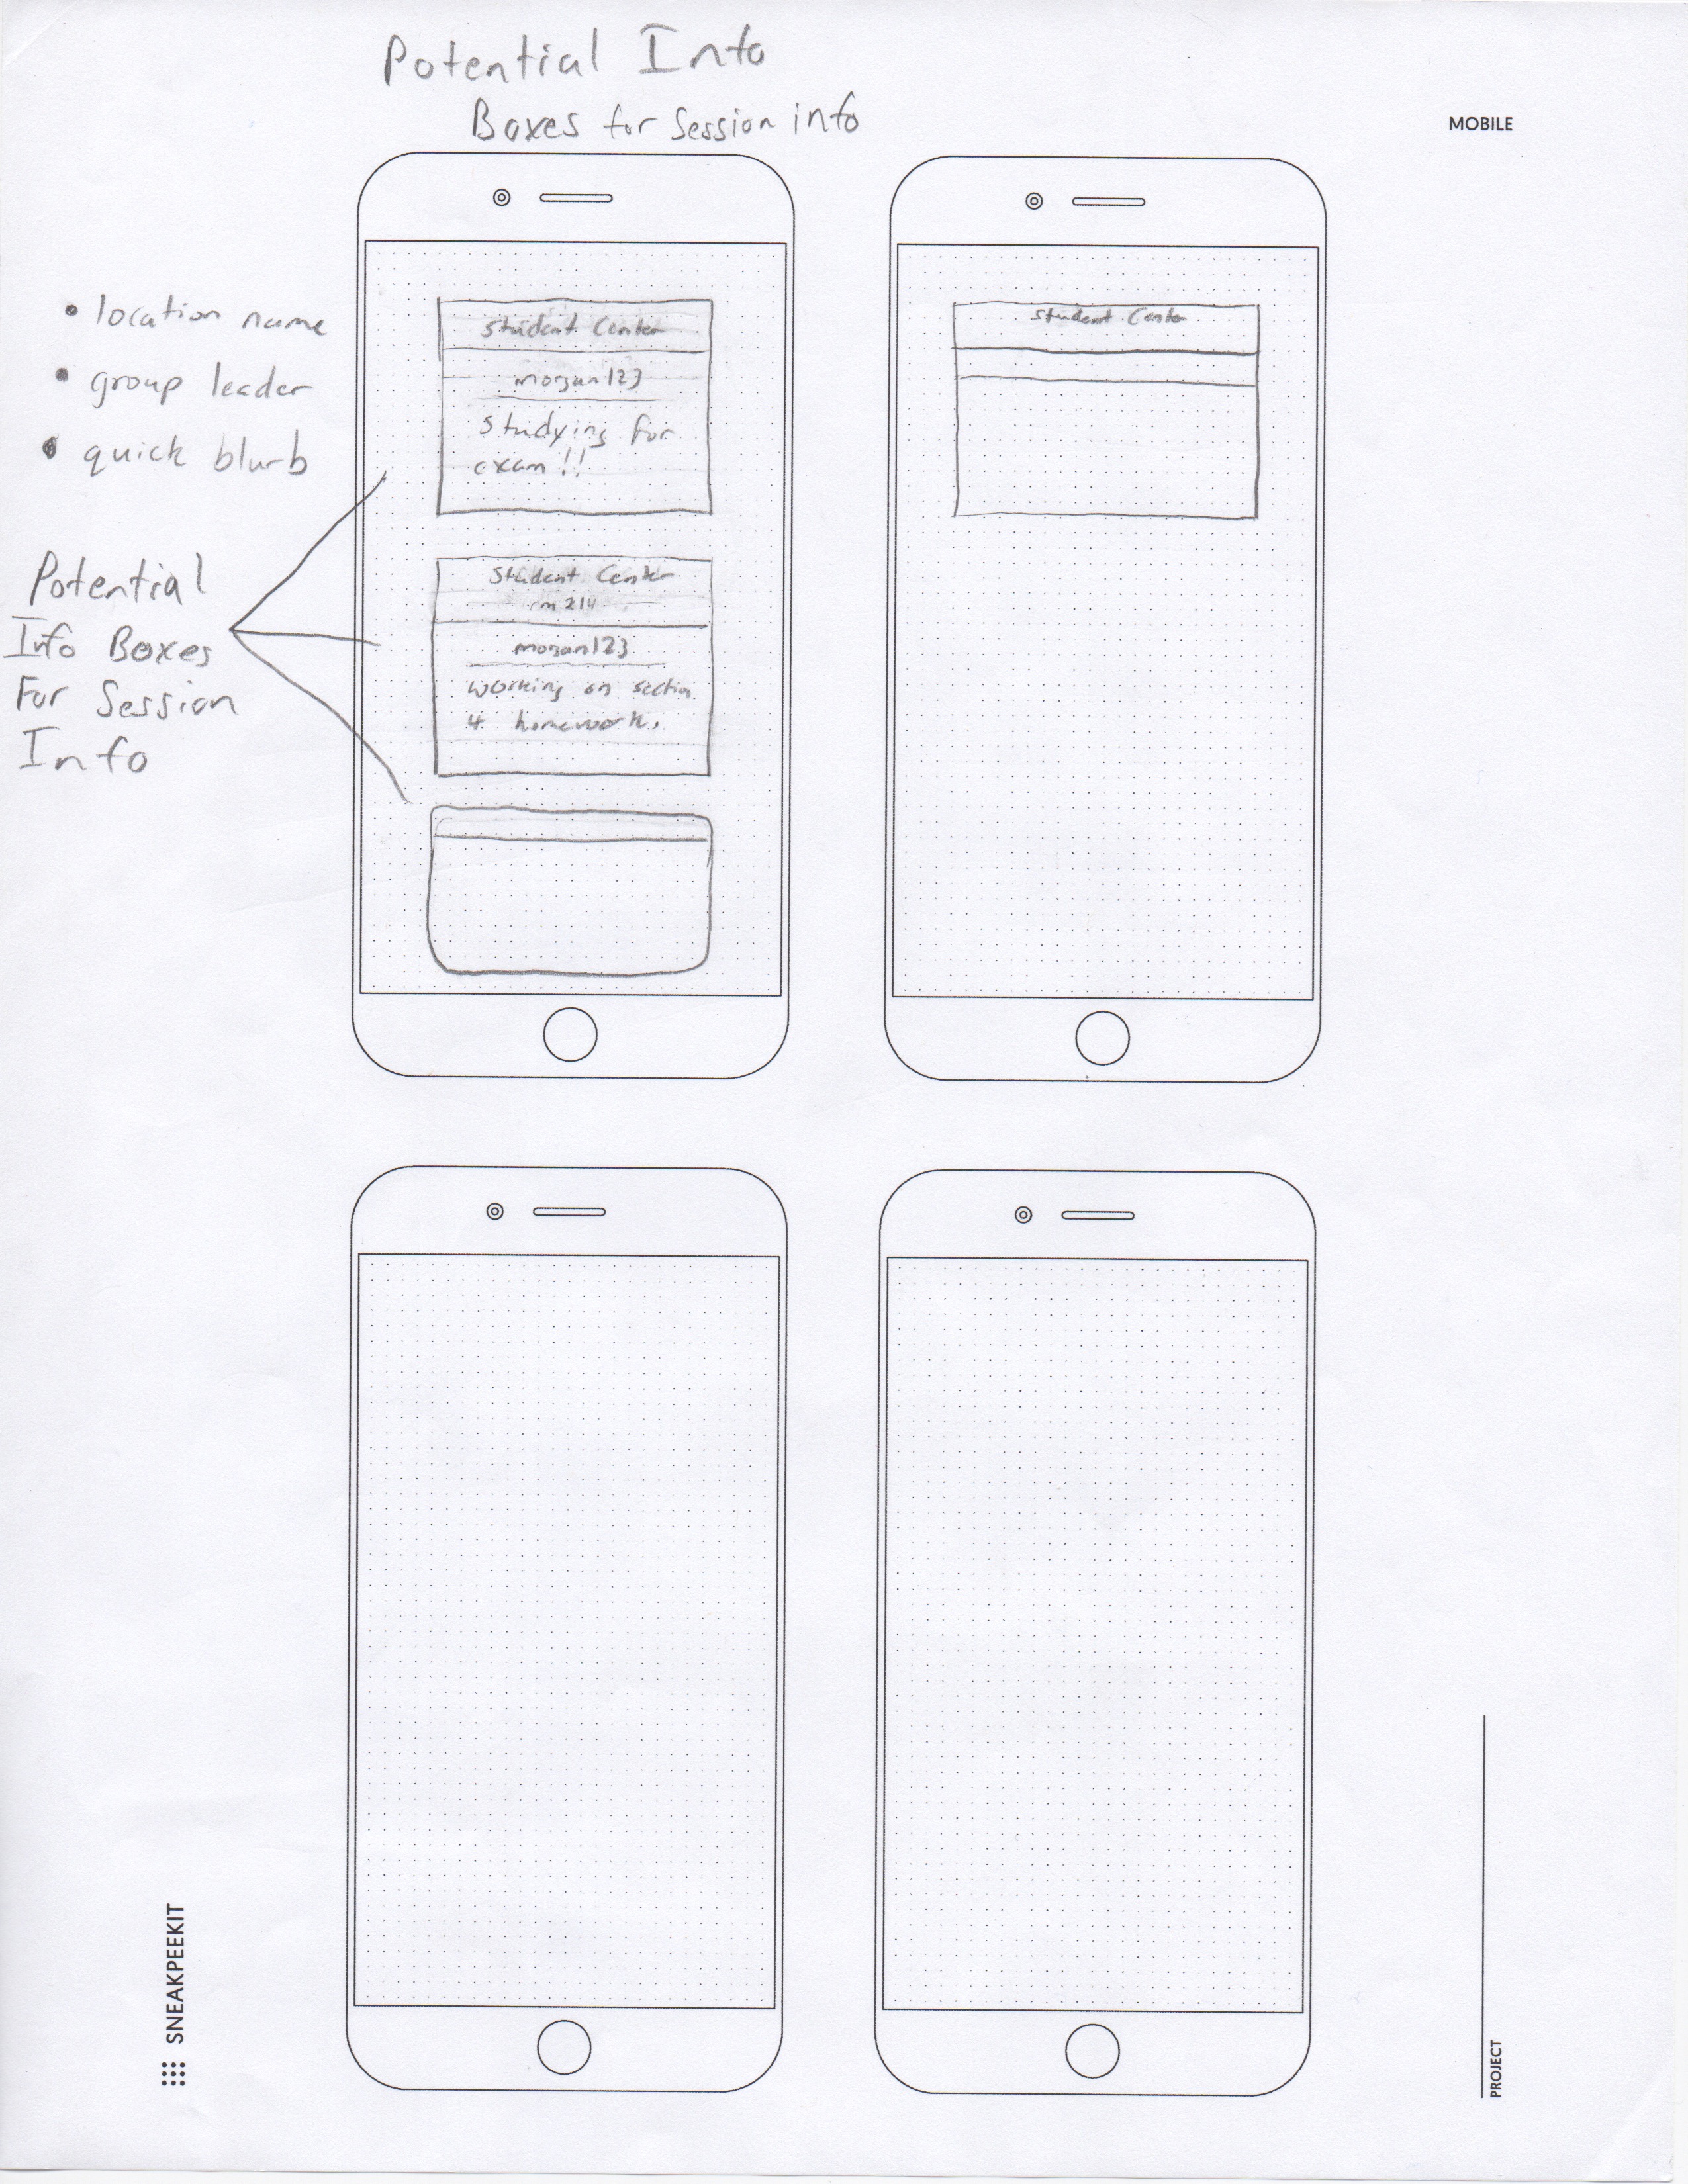 Potential Info
Boxes for Session info
MOBILE
• location name
• group leader
• quick blurb
Potential
Info Boxes
For Session
Info
Student Center
morgan123
Studying for
exam!!
Student Center
rm 214
morgan123
Working on section
4 homework.
Student Center
SNEAKPEEKIT
PROJECT